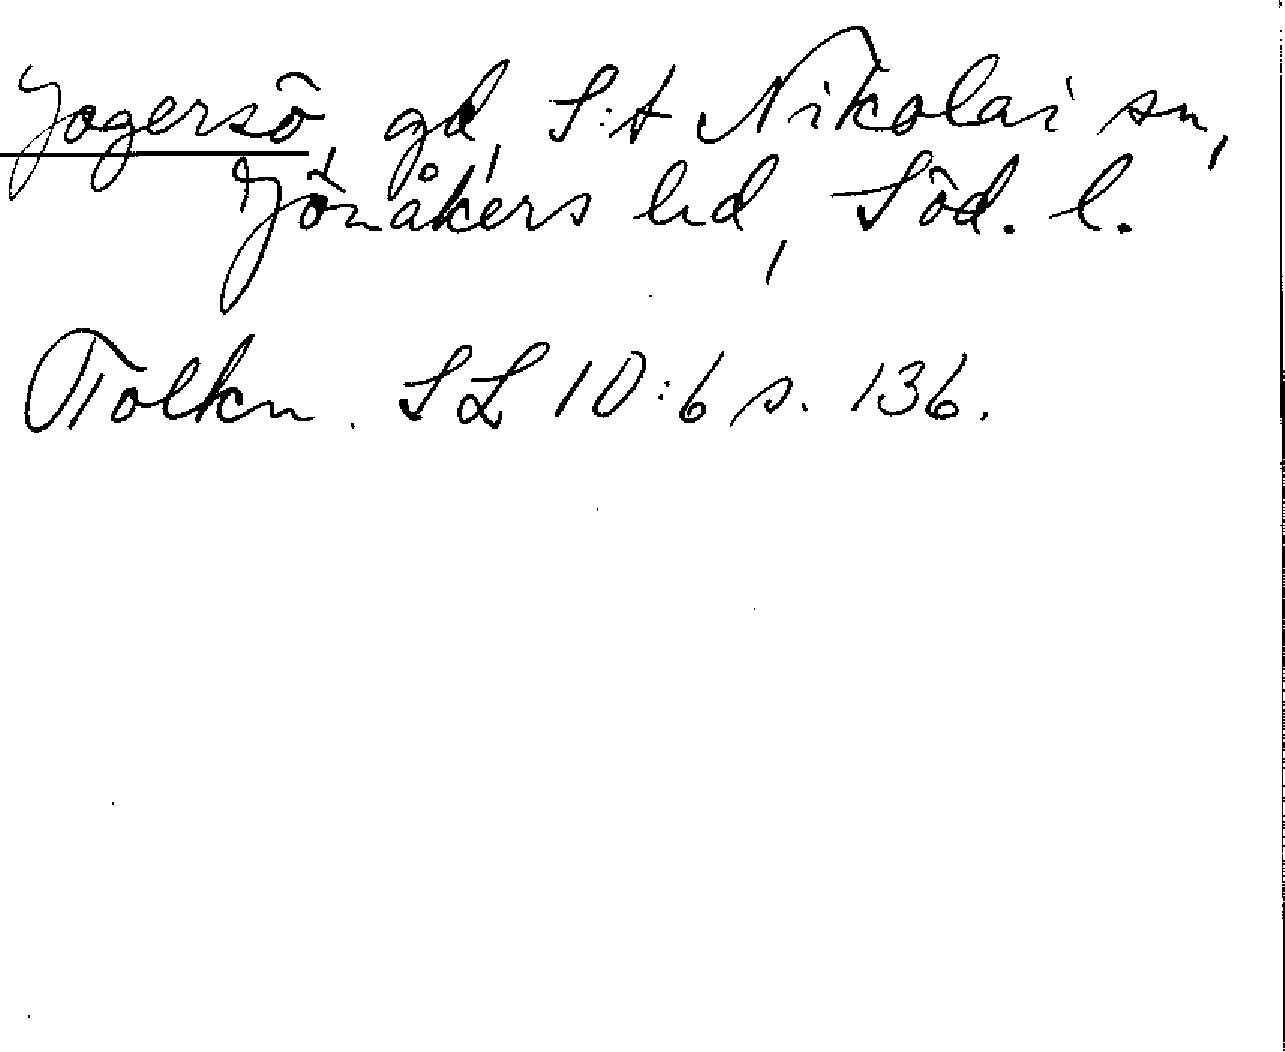 Jogersö, gd, S:t Nikolai sn,
Jönåkers hd, Söd. l.
Tolkn. SL 10:6 s. 136.